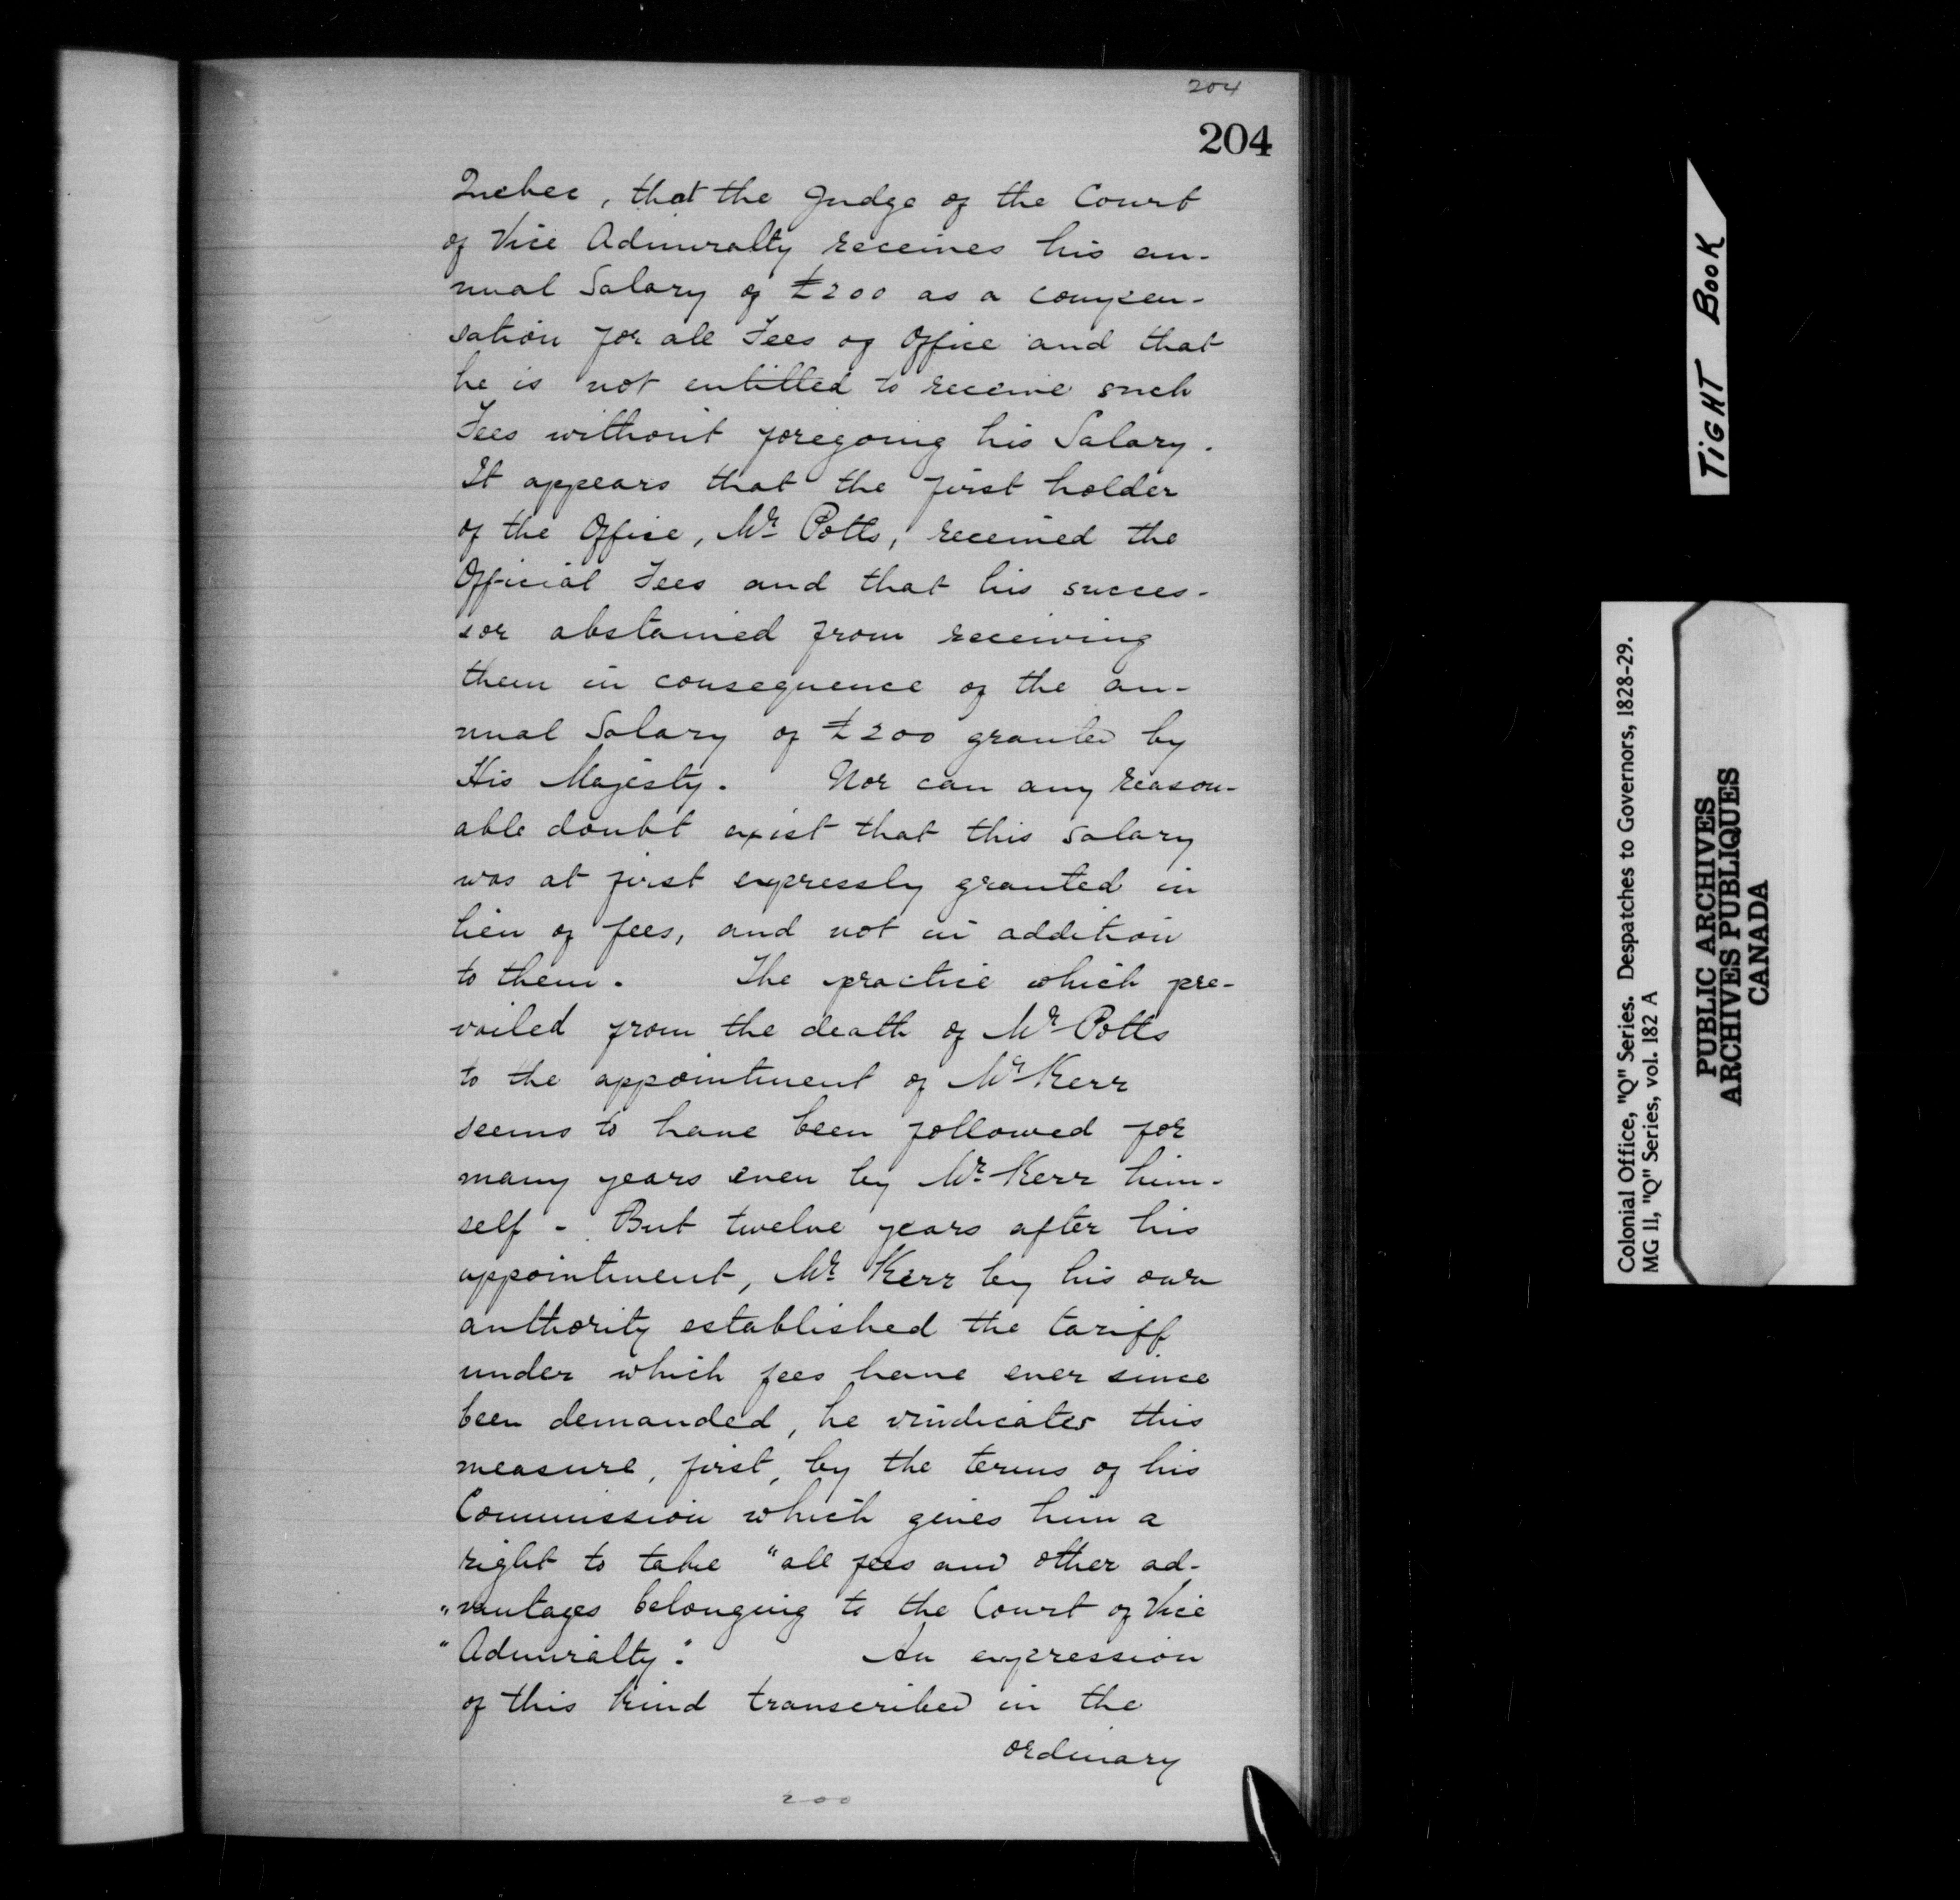 204
204
Quebec, that the Judge of the Court
of Vice Admiralty receives his an-
nual Salary of £200 as a compen-
sation for all Fees of Office and that
he is not entitled to receive such
Fees without foregoing his Salary.
It appears that the first holder
of the Office, Mr Potts, received the
Official Fees and that his succes-
sor abstained from receiving
them in consequence of the an-
nual Salary of £200 granted by
His Majesty. Nor can any reason-
able doubt exist that this salary
was at first expressly granted in
lieu of fees, and not in addition
to them. The practice which pre-
vailed from the death of Mr Potts
to the appointment of Mr Kerr
seems to have been followed for
many years even by Mr Kerr him-
self - But twelve years after his
appointment, Mr Kerr by his own
authority established the tariff
under which fees have ever since
been demanded, he vindicates this
measure, first, by the terms of his
Commission which gives him a
right to take "all fees and other ad-
"vantages belonging to the Court of Vice
"Admiralty." An expression
of this kind transcribed in the
ordinary
200
TIGHT BOOK
Colonial Office, "Q" Series. Despatches to Governors, 1828-29.
MG 11, "Q" Series, vol. 182 A
PUBLIC ARCHIVES
ARCHIVES PUBLIQUES
CANADA